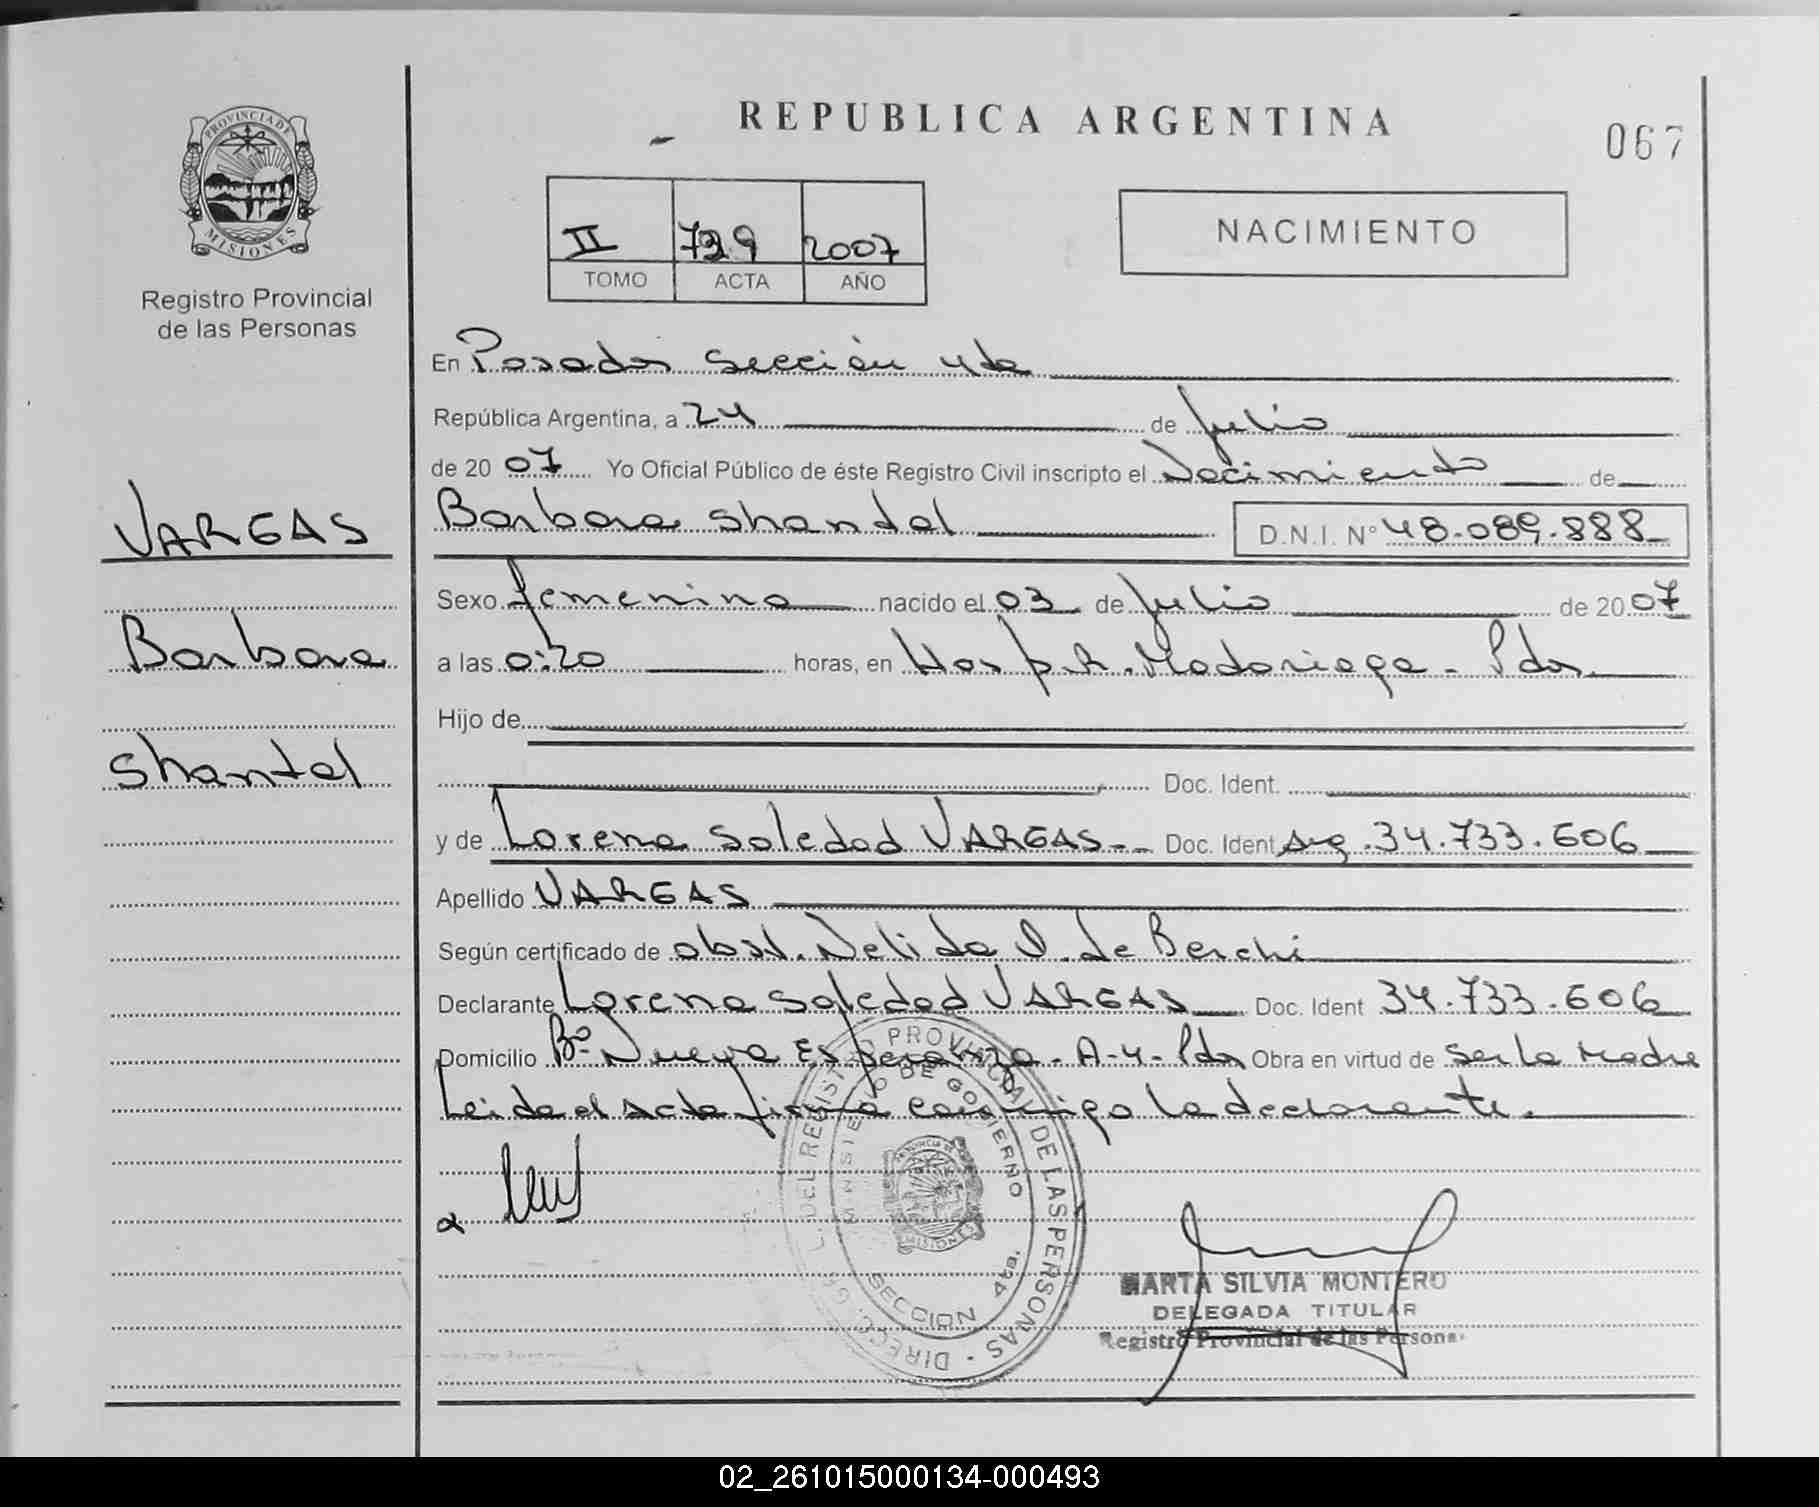 REPUBLICA ARGENTINA
067
PROVINCIA DE
MISIONES
Registro Provincial
de las Personas
II 729 2007
TOMO ACTA AÑO
NACIMIENTO
En Posadas Sección 4ta
República Argentina, a 24 de Julio
de 2007 Yo Oficial Público de éste Registro Civil inscripto el Nacimiento de
Barbara Shantal D.N.I. Nº 48.089.888
Sexo femenino nacido el 03 de Julio de 2007
a las 0:20 horas, en Hosp. R. Madariaga - Pdas
Hijo de
Doc. Ident.
y de Lorena Soledad VARGAS -- Doc. Ident Arg. 34.733.606
Apellido VARGAS
Según certificado de obst. Nelida I. de Berchi
Declarante Lorena Soledad VARGAS Doc. Ident 34.733.606
Domicilio Bº Nueva Esperanza - A-4 - Pdas Obra en virtud de ser la madre
Leida el acta firma conmigo la declarante.
VARGAS
Barbara
Shantal
DIRECC. GRAL. DEL REGISTRO PROVINCIAL DE LAS PERSONAS -
MINISTERIO DE GOBIERNO
SECCION 4ta.
MARTA SILVIA MONTERO
DELEGADA TITULAR
Registro Provincial de las Personas
02_261015000134-000493